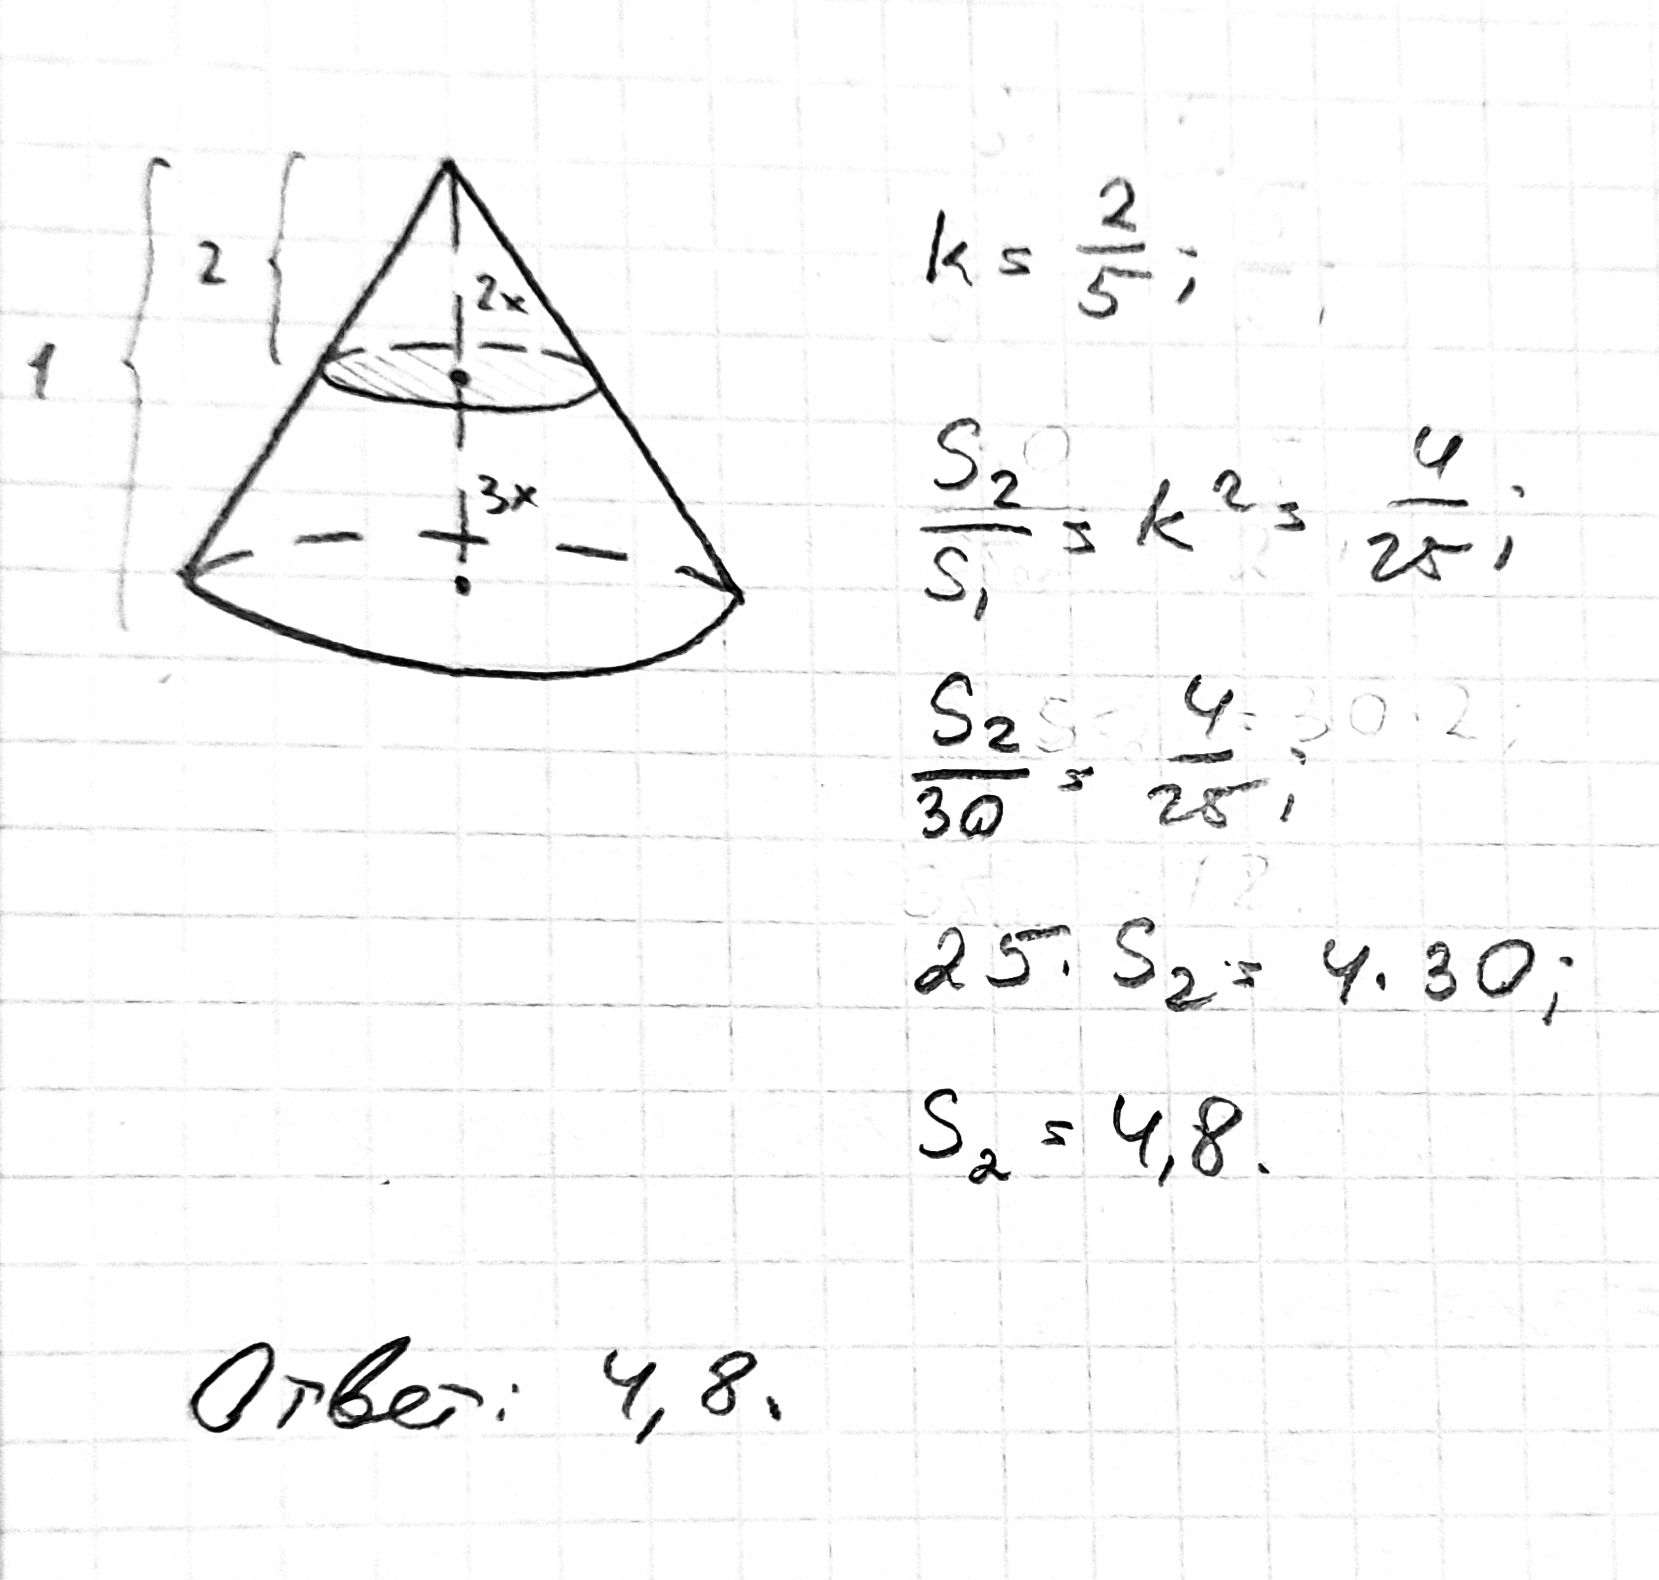 1
2
2x
3x
k = 2/5;
S₂/S₁ = k² = 4/25;
S₂/30 = 4/25;
25 · S₂ = 4 · 30;
S₂ = 4,8.
Ответ: 4,8.